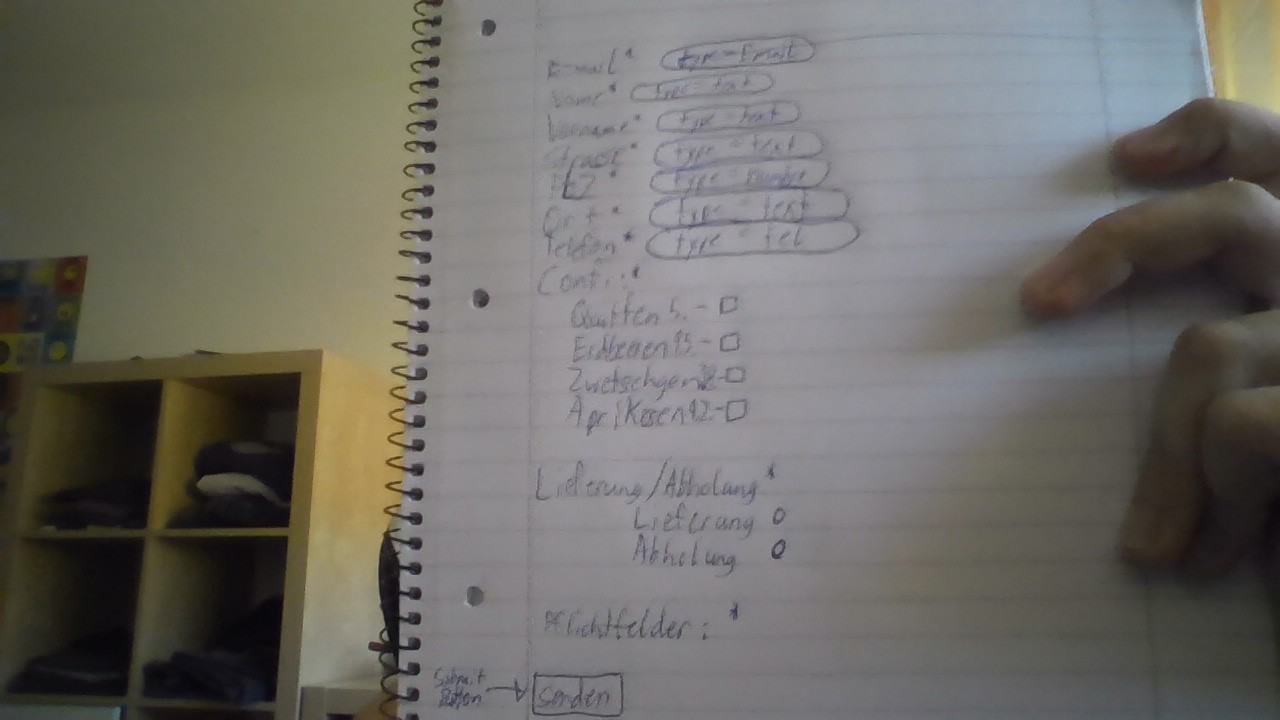 E-mail* type=Email
Name* type=text
Vorname* type=text
Strasse* type=text
PLZ* type=number
Ort* type=text
Telefon* type=tel
Confi:*
Quitten 5.-
Erdbeeren 15.-
Zwetschgen
Aprikosen 12.-
Lieferung/Abholung*
Lieferung
Abholung
Pflichtfelder: *
Submit Button
Senden